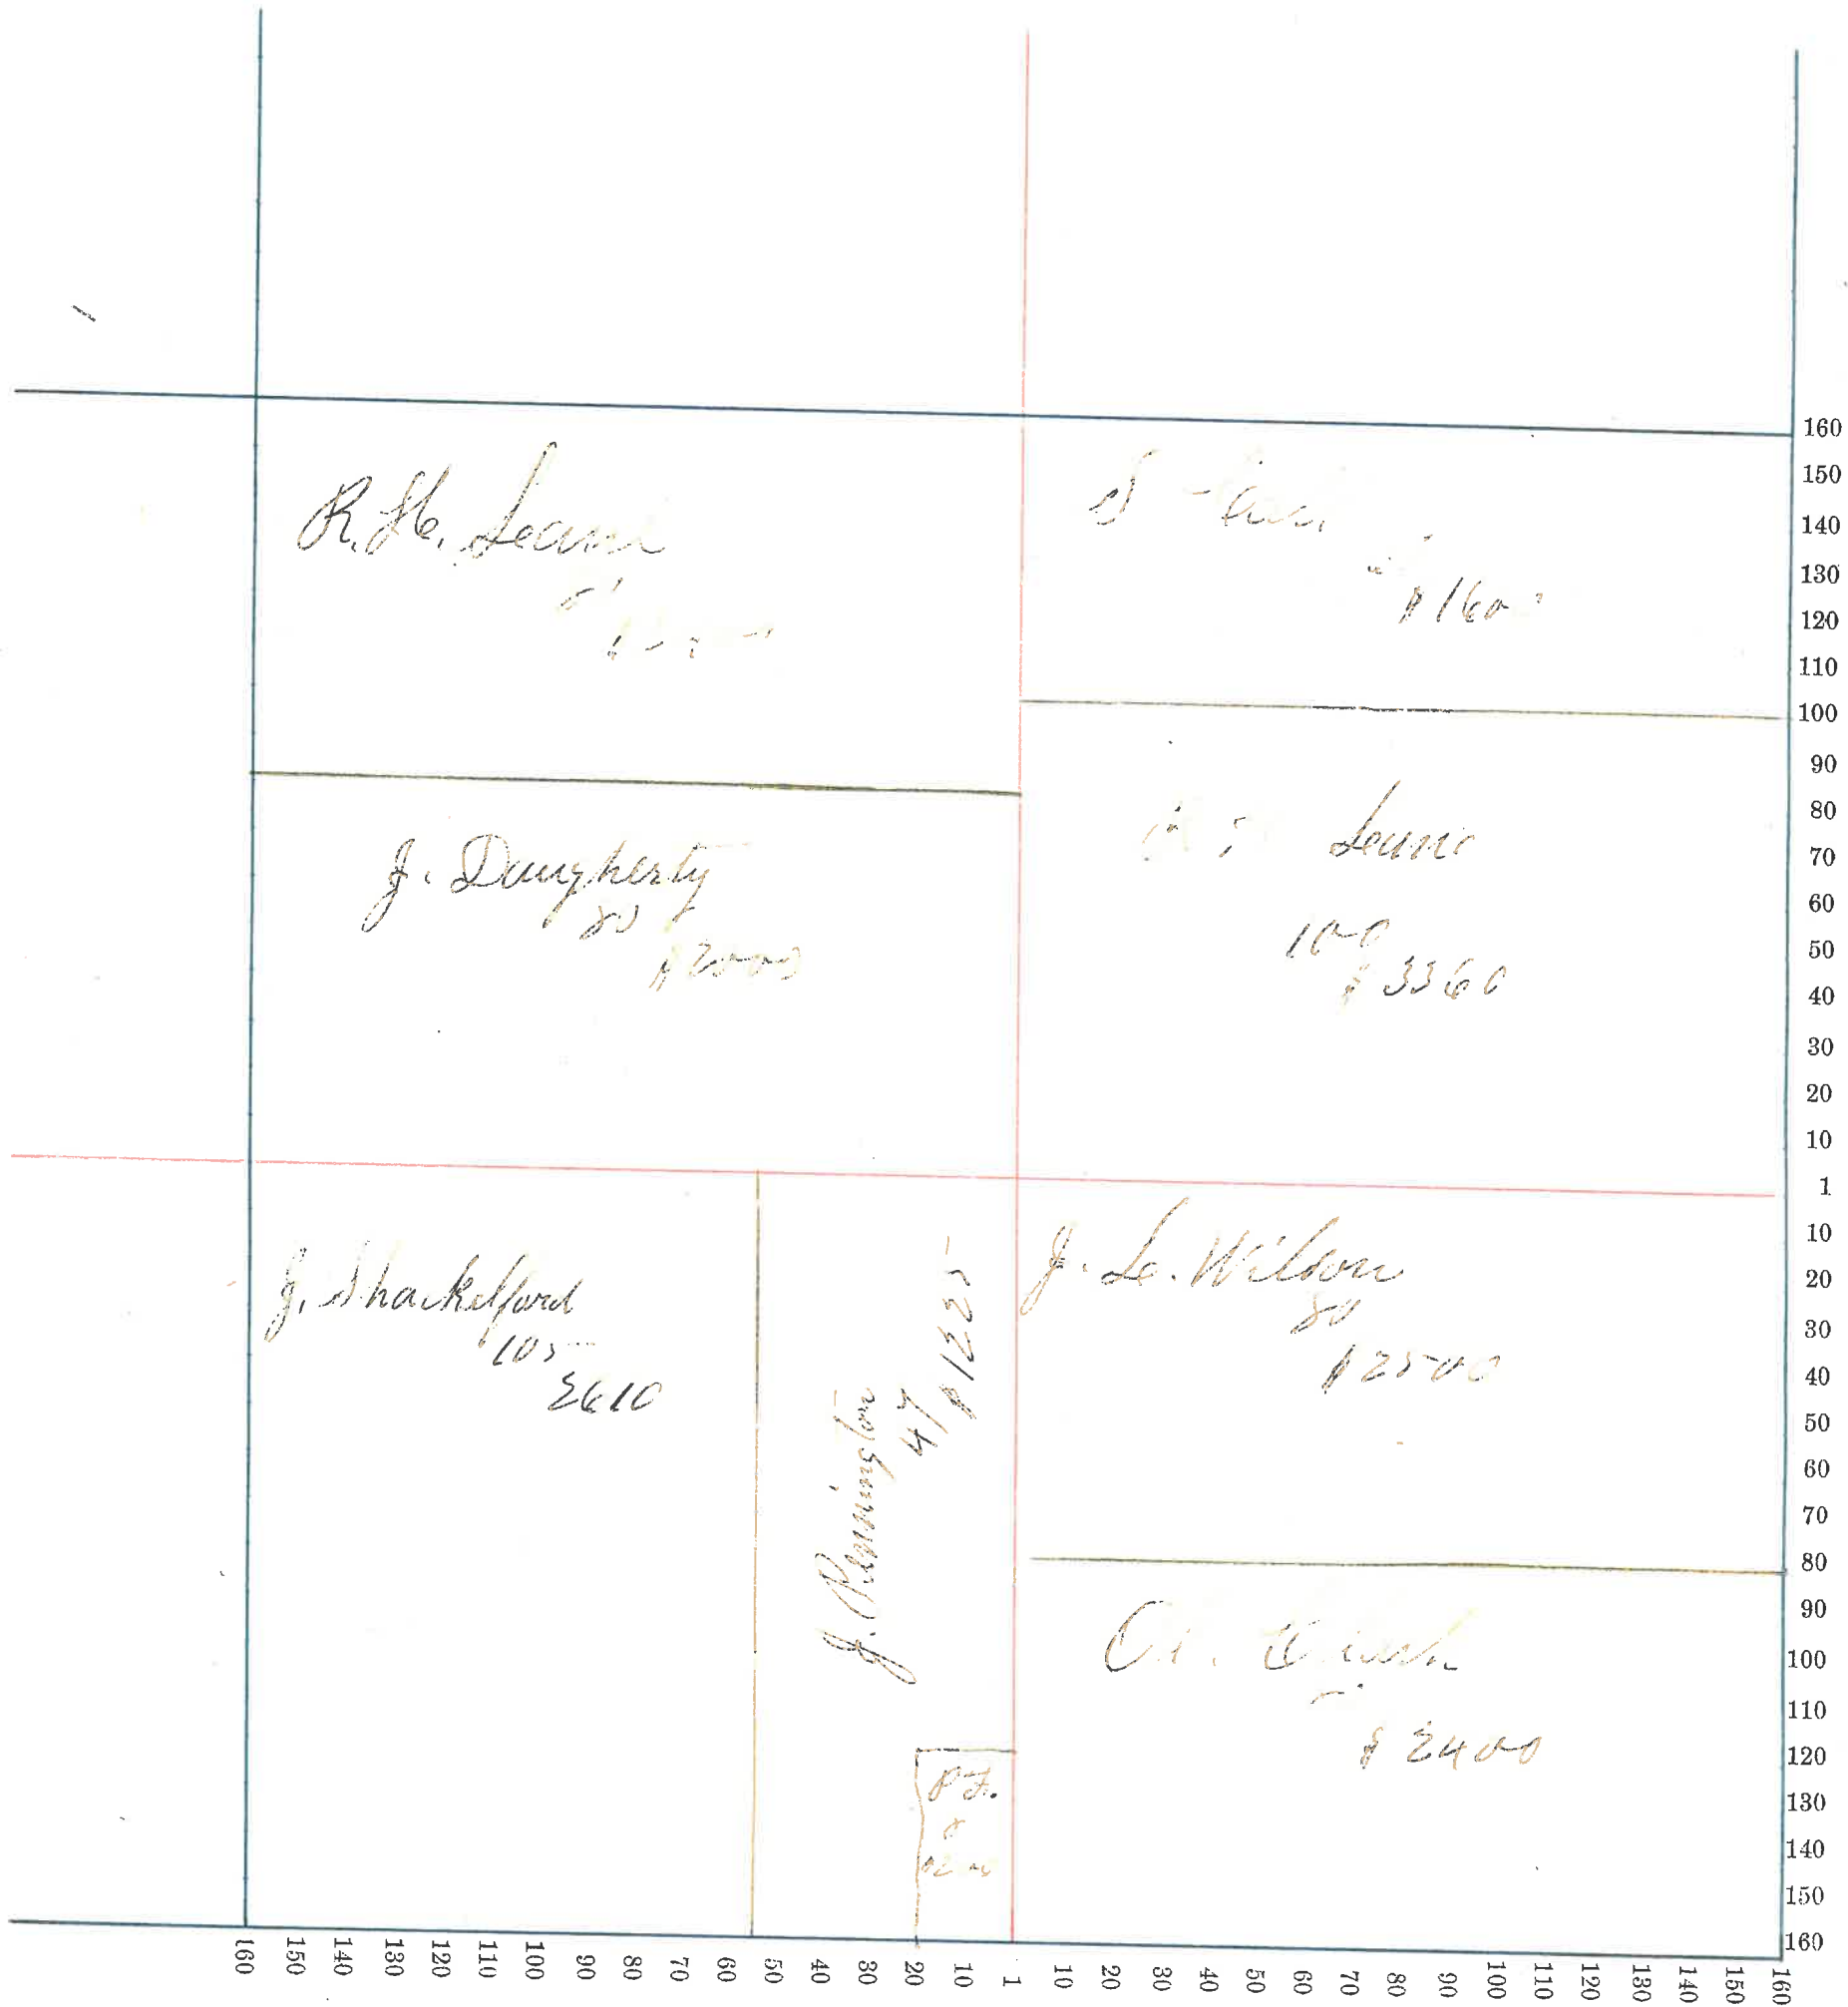 R. H. Leane
$160
J. Daugherty
80
$2000
Leane
100
$3360
J. Shackelford
105
2610
J. Pennington
47
$1225
J. L. Wilson
80
$2500
$2400
160
150
140
130
120
110
100
90
80
70
60
50
40
30
20
10
1
10
20
30
40
50
60
70
80
90
100
110
120
130
140
150
160
160 150 140 130 120 110 100 90 80 70 60 50 40 30 20 10 1 10 20 30 40 50 60 70 80 90 100 110 120 130 140 150 160